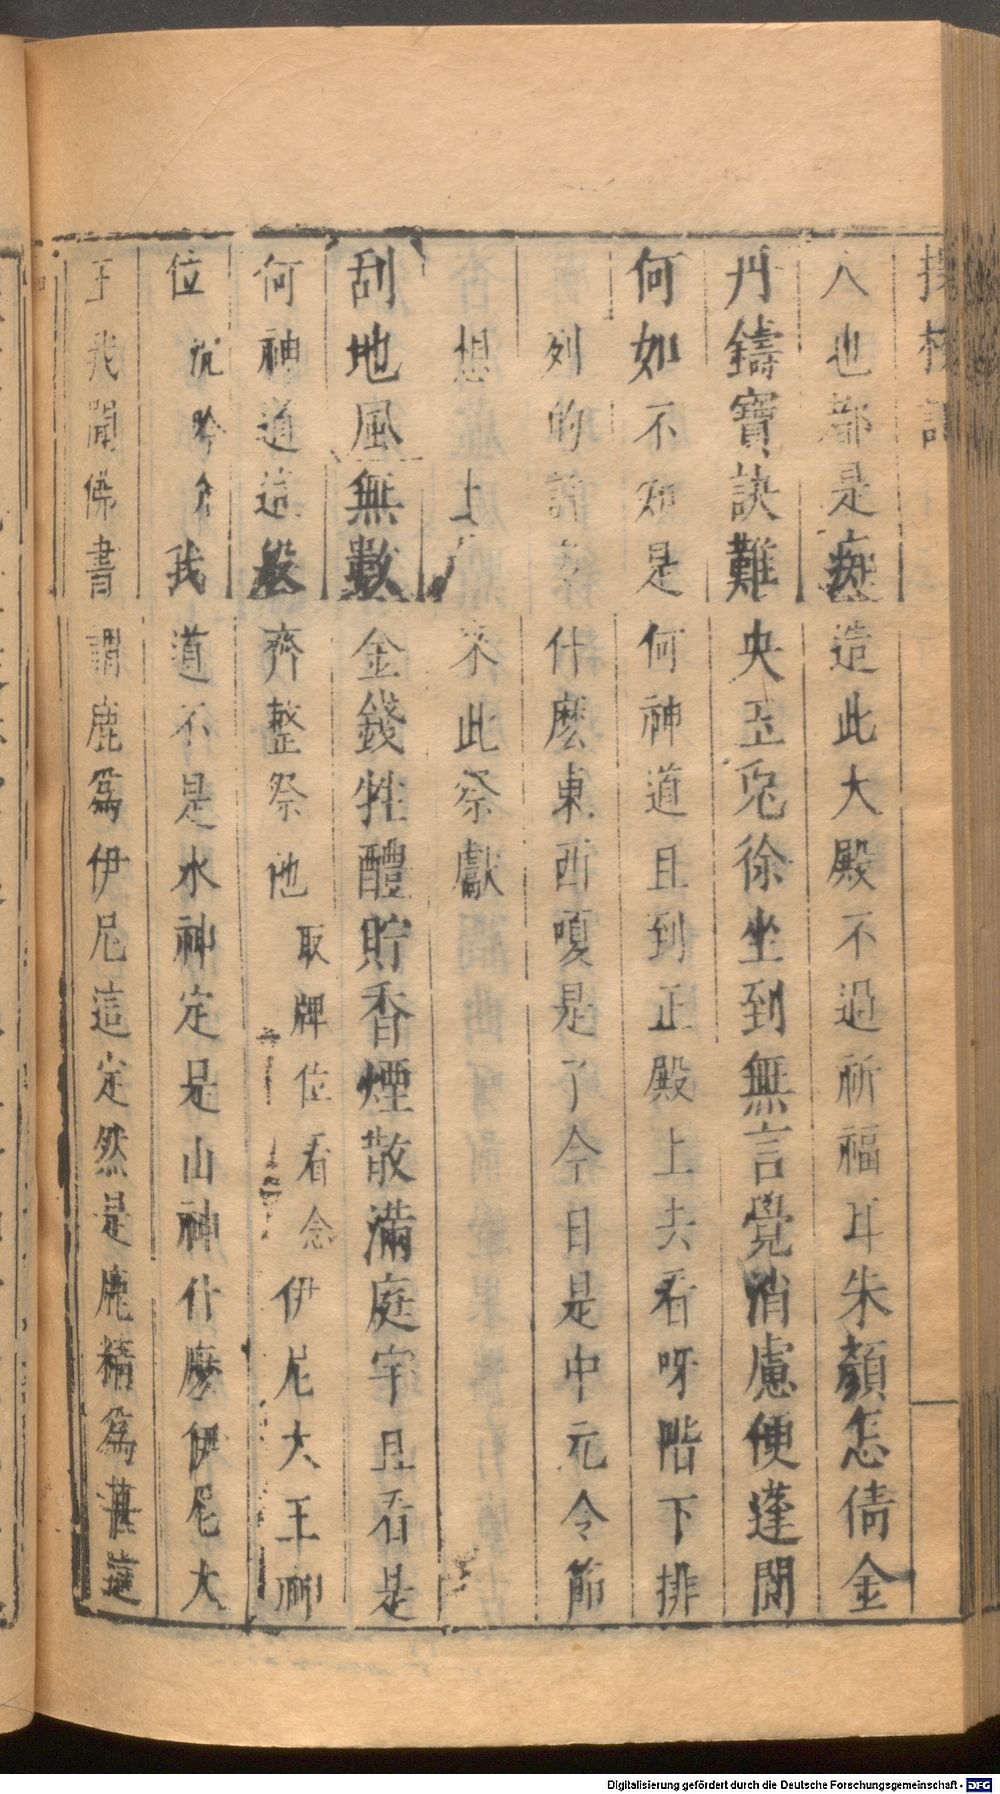 人也都是痴造此大殿不過祈福耳朱顏怎倩金
丹鑄寶訣難央玉兔徐坐到無言覺消慮便蓬閬
何如不知是何神道且到正殿上去看呀階下排
列的許多什麽東西嗄是了今日是中元令節
想 上來此祭獻
刮地風無數金錢牲醴貯香煙散滿庭宇且看是
何神道這般齊整祭他取牌位看念伊尼大王
位沉吟介我道不是水神定是山神什麽伊尼大
王我聞佛書謂鹿爲伊尼這定然是鹿精爲甚這
Digitalisierung gefördert durch die Deutsche Forschungsgemeinschaft - DFG